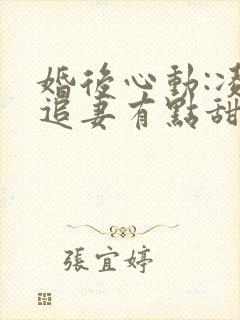 婚後心動:凌
追妻有點甜
張宜婷